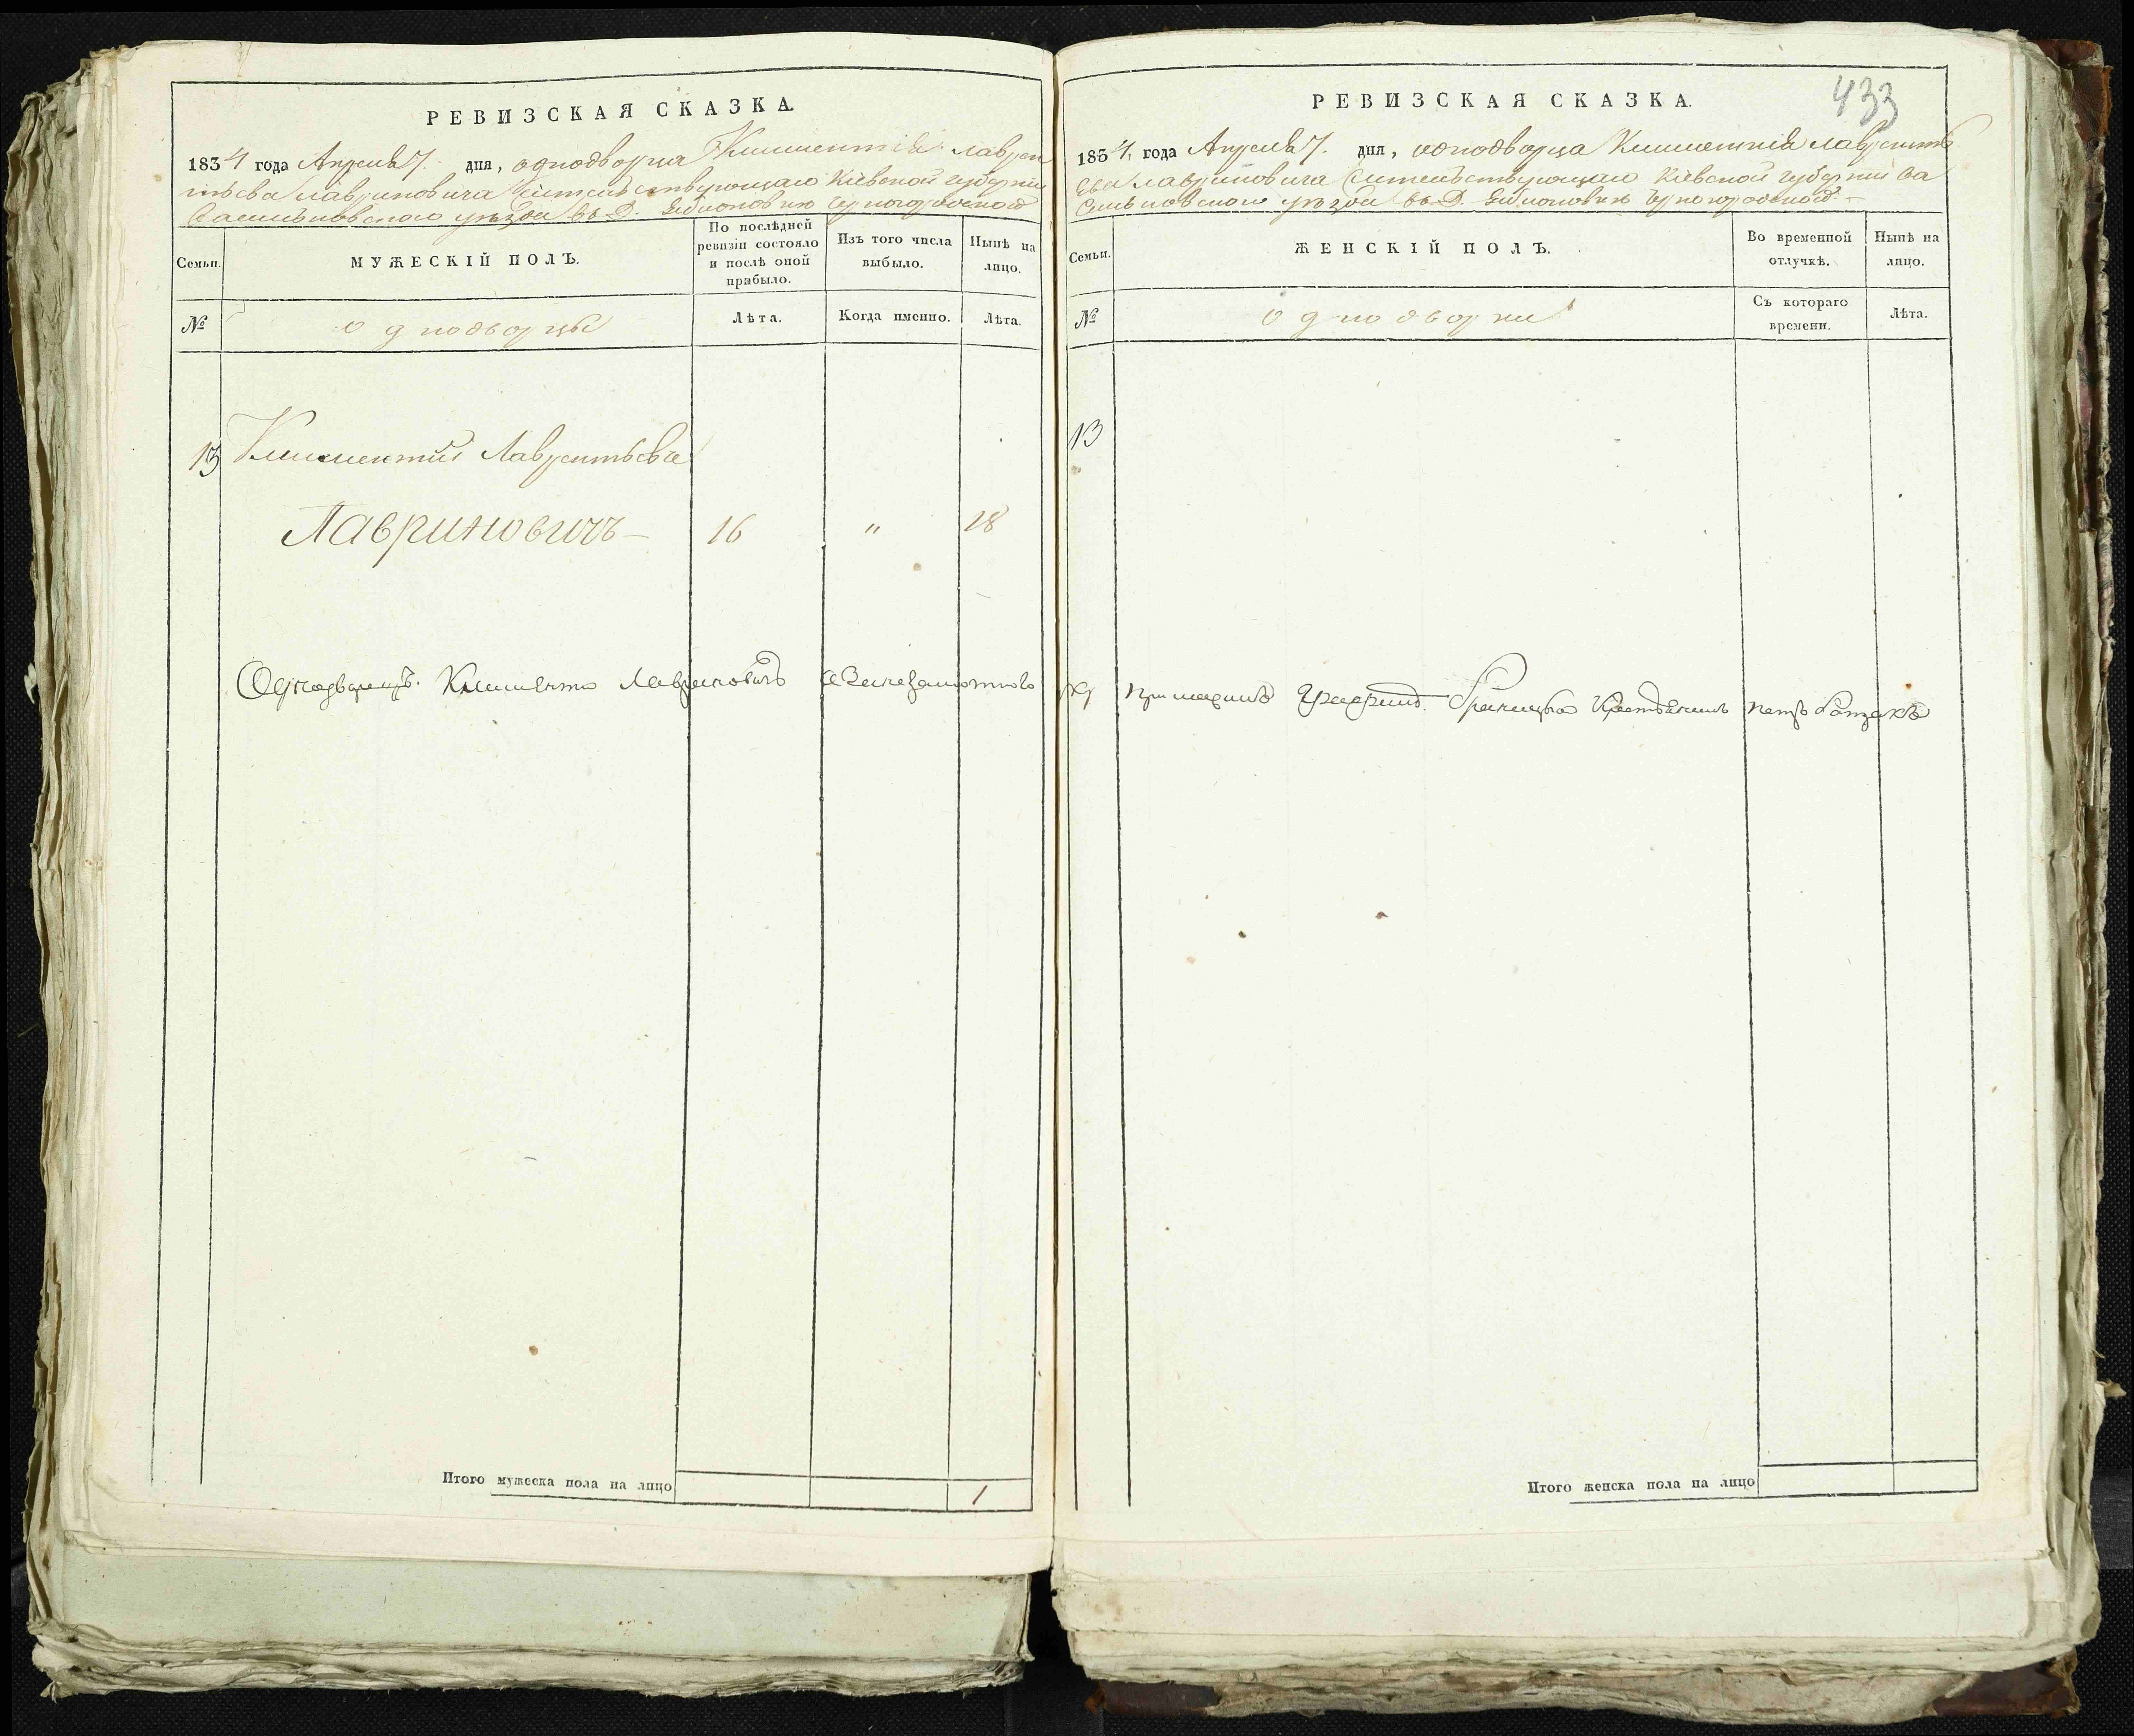 РЕВИЗСКАЯ СКАЗКА.
1834 года Апреля 7. дня, однодворца Климентія Лаврен
тьева Лавриновича жительствующаго Кіевской губерніи
Васильковскаго уѣзда въ Д.
Семьи.
МУЖЕСКІЙ ПОЛЪ.
По послѣдней ревизіи состояло и послѣ оной прибыло.
Изъ того числа выбыло.
Нынѣ на лицо.
№
однодворцы
Лѣта.
Когда именно.
Лѣта.
13 Климентий Лаврентьевъ
Лавриновичъ — 16 " 28
Однодворецъ Климентъ Лавриновичъ
Итого мужеска пола на лицо 1
433
РЕВИЗСКАЯ СКАЗКА.
1834 года Апреля 7. дня, однодворца Климентия Лавренть
ева Лавриновича жительствующаго Кіевской губерніи Ва
сильковскаго уѣзда въ Д.
Семьи.
ЖЕНСКІЙ ПОЛЪ.
Во временной отлучкѣ.
Нынѣ на лицо.
№
однодворки
Съ котораго времени.
Лѣта.
13
Итого женска пола на лицо